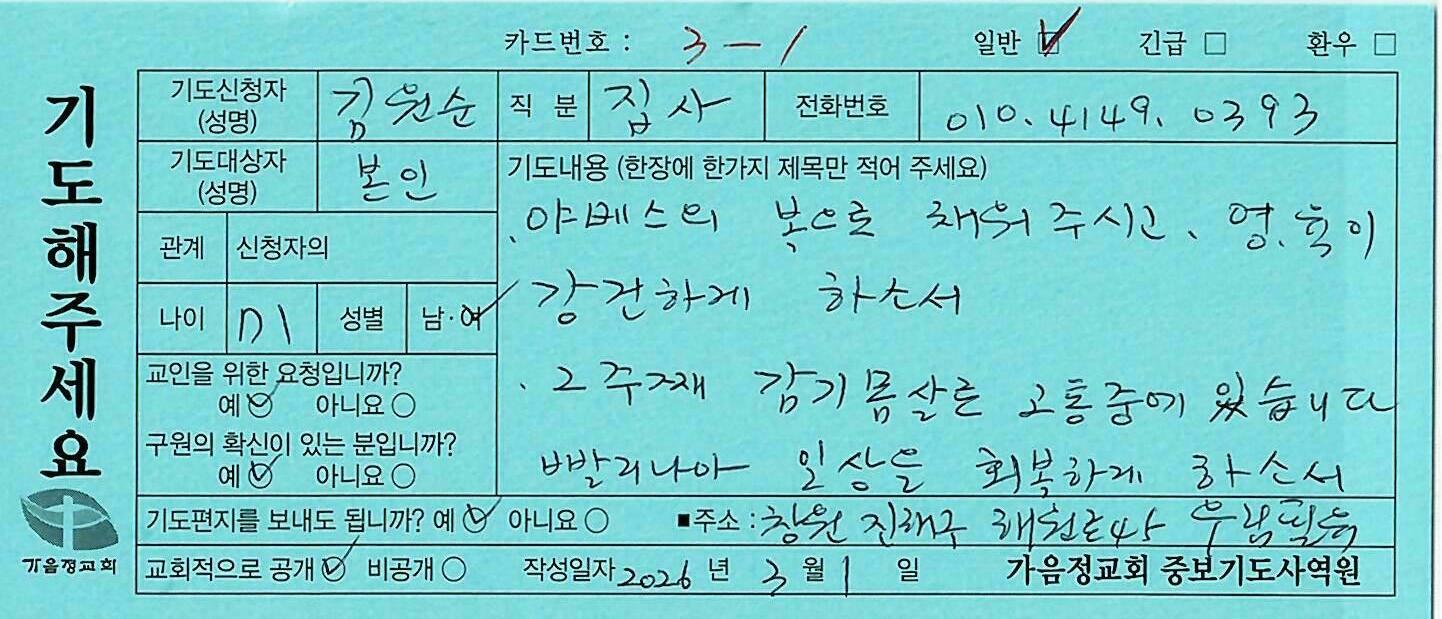 카드번호 : 3-1 일반 ☑ 긴급 □ 환우 □
기도해주세요
기도신청자 (성명) 김원순 직 분 집사 전화번호 010.4149.0393
기도대상자 (성명) 본인
기도내용 (한장에 한가지 제목만 적어 주세요)
. 야베스의 복으로 채워주시고, 영.육이
강건하게 하소서
. 2주째 감기몸살로 고통중에 있습니다
빨리나아 일상을 회복하게 하소서
관계 신청자의
나이 71 성별 남 · 여
교인을 위한 요청입니까?
예 ☑ 아니요 ○
구원의 확신이 있는 분입니까?
예 ☑ 아니요 ○
기도편지를 보내도 됩니까? 예 ☑ 아니요 ○ ■주소 : 창원 진해구
교회적으로 공개 ☑ 비공개 ○ 작성일자 2026 년 3 월 1 일 가음정교회 중보기도사역원
가음정교회